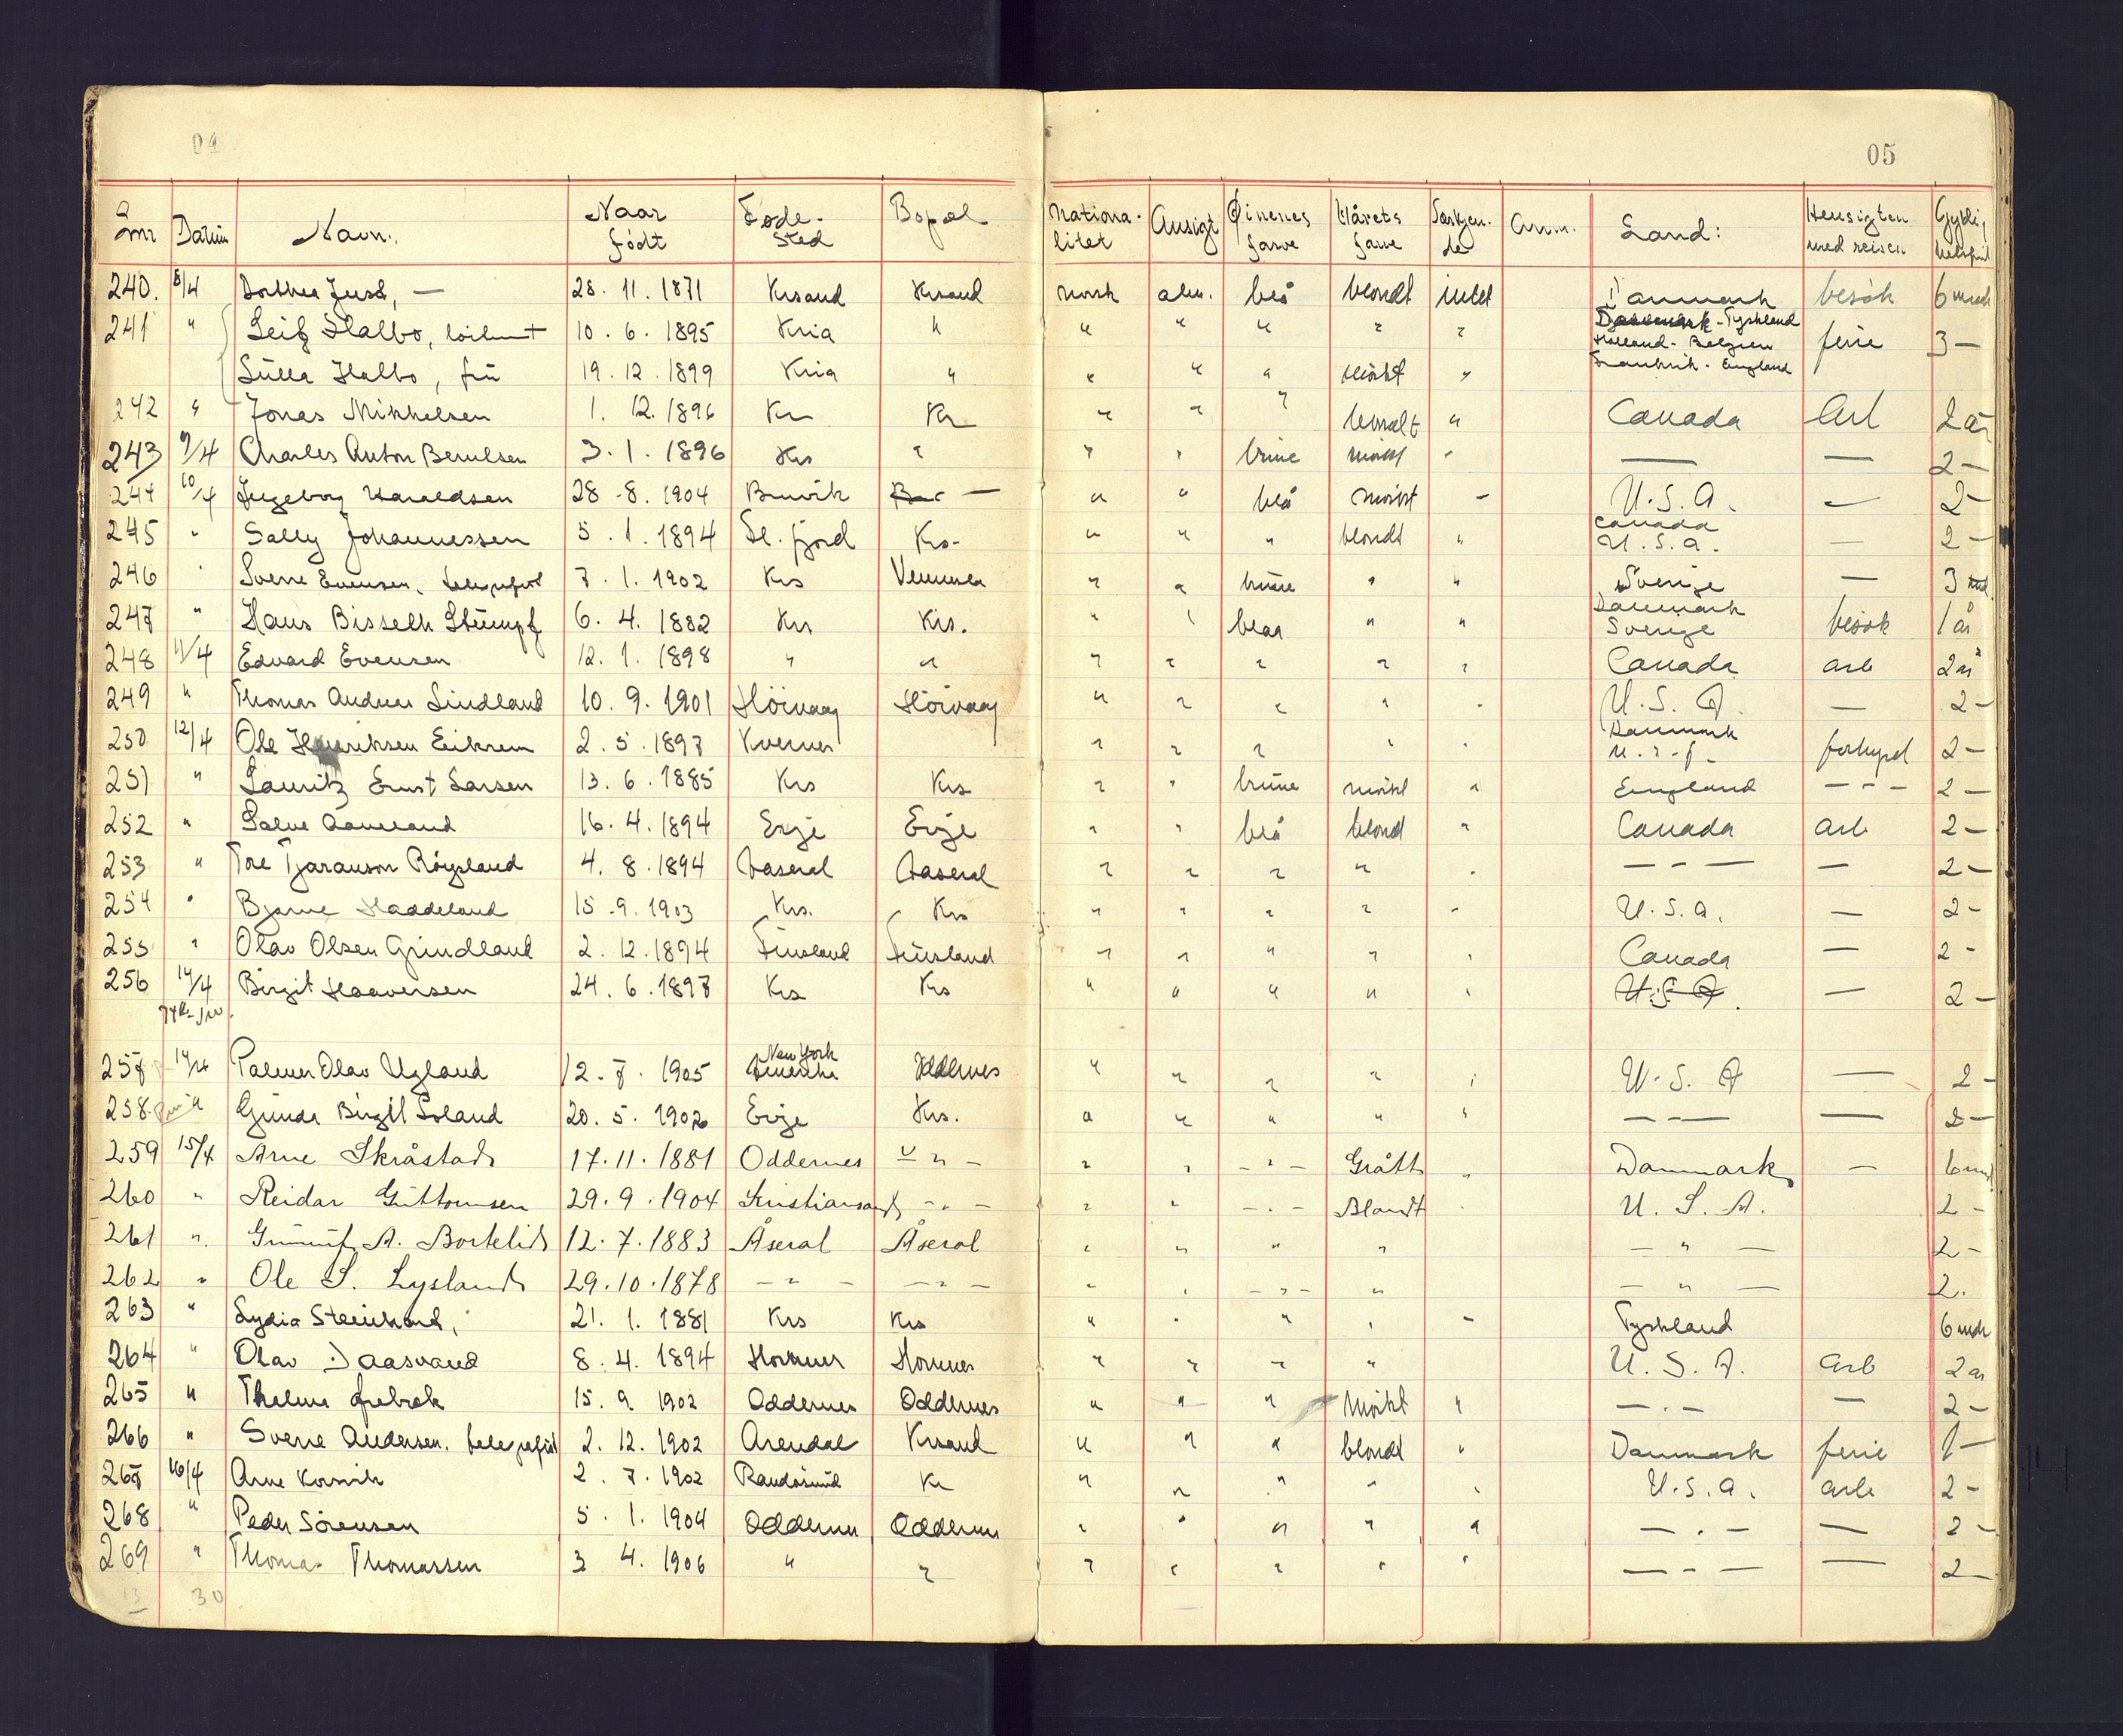 04
05
Lnr Datum Navn. Naar født Føde-sted Bopæl Nationa-litet Ansigt Øinenes farve Hårets farve Særkjen-de Anm. Land: Hensigten med reisen Gyldi,
240. 8/4 Dorthea Just, — 28. 11. 1871 Krsand Krsand norsk alm. blå blondt intet Danmark besøk 6 mnd
241 " Leif Halbo, 10. 6. 1895 Kria " " " " " " Danmark - Tyskland Holland - Belgien Frankrik. England ferie 3 —
Lulla Halbo, fru 19. 12. 1899 Kria " " " " mørkt "
242 " Jonas Mikkelsen 1. 12. 1896 Kr Kr " " " blondt " Canada Arb 2 år
243 9/4 Charles Anton Berulsen 3. 1. 1896 Krs " " " brune mørkt " — — 2 —
244 10/4 Ingeborg Haraldsen 28. 8. 1904 — " " blå mørkt - U.S.A. — 2 -
245 " Sally Johannessen 5. 1. 1894 Fl. fjord Krs- " " " blondt " Canada U.S.A. — 2 —
246 " Sverre Evensen, telegrafist 7. 1. 1902 Krs Vennesla " " brune " " Sverige — 3 mnd
247 " Hans Bisseth Stumpf 6. 4. 1882 Krs Krs. " " blaa " " Danmark Sverige besøk 1 år
248 11/4 Edvard Evensen 12. 1. 1898 " " " " " " " Canada arb 2 år
249 " Thomas Andreas Lindland 10. 9. 1901 Höivaag Höivaag " " " " " U.S.A. — 2 -
250 12/4 Ole Henriksen Eikrem 2. 5. 1897 Kvernes " " " " " Danmark 2 —
251 " Lauritz Ernst Larsen 13. 6. 1885 Krs Krs " " brune mørkt " England - - - 2 —
252 " Salve Aaneland 16. 4. 1894 Evje Evje " " blå blond " Canada arb 2 —
253 " Tore Tjaranson Röysland 4. 8. 1894 Aaseral Aaseral " " " " " — - — — 2 —
254 " Bjarne Haddeland 15. 9. 1903 Krs. Krs " " " " " U.S.A. — 2 -
255 " Olav Olsen Grindland 2. 12. 1894 Finsland Finsland " " " " " Canada — 2 -
256 14/4 Birgit Haaversen 24. 6. 1897 Krs Krs " " " " " U.S.A. — 2 —
257 14/4 Palmer Olav Ugland 12. 7. 1905 New York Amerika Oddernes " " " " " U.S.A — 2 -
258 " Gunda Birgit Soland 20. 5. 1902 Evje Krs. " " " " " — - — — 2 —
259 15/4 Arne Skråstad 17. 11. 1881 Oddernes " - " " - " - Grått " Danmark — 6 mnd.
260 " Reidar Guttormsen 29. 9. 1904 Kristiansand - " - " " - " - Blondt " U.S.A. 2 -
261 " A. Bortelid 12. 7. 1883 Åseral Åseral " " " " — " — 2 -
262 " Ole S. Lysland 29. 10. 1878 - " - - " - " " - " - " — " — 2.
263 " Lydia 21. 1. 1881 Krs Krs " " " " - Tyskland 6 mndr
264 " Olav Daasvand 8. 4. 1894 Hornnes Hornnes " " " " U.S.A. arb 2 år
265 " Thelma 15. 9 1902 Oddernes Oddernes " " " mørkt " — - — — 2 -
266 " Sverre Andersen, telegrafist 2. 12. 1902 Arendal Krsand " " " blondt " Danmark ferie 1 —
267 16/4 Arne Korsvik 2. 7. 1902 Randøsund Kr " " " " " U.S.A. arb 2 -
268 " Peder Sörensen 5. 1. 1904 Oddernes Oddernes " " " " " — - — — 2 -
269 " Thomas Thomassen 3 4. 1906 " " " " " " " — - — — 2 —
13 30